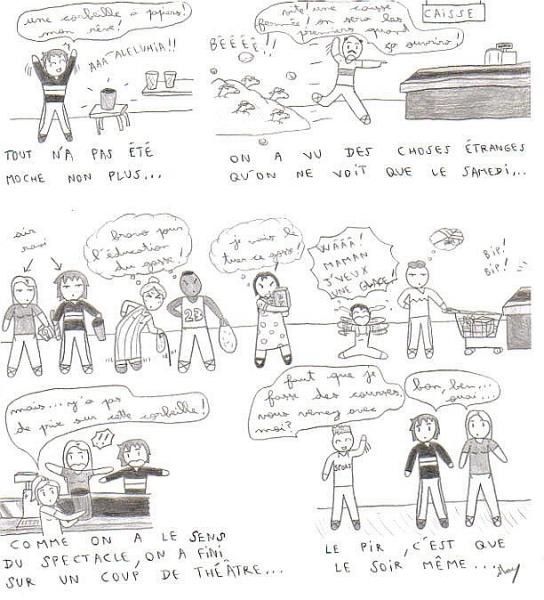 une corbeille à papiers!
mon rêve!
AAA-ALELUHIA!!
TOUT N'A PAS ÉTÉ
MOCHE NON PLUS...
vite! une caisse
fermée! on sera les
premiers quand
ça ouvrira!
CAISSE
BÊÊÊÊ!!
ON A VU DES CHOSES ÉTRANGES
QU'ON NE VOIT QUE LE SAMEDI...
air
ravi
bravo pour
l'éducation
du gosse!
23
je vais le
tuer ce gosse!
WÂÂÂ!
MAMAN
J'VEUX
UNE GLACE!
BIP!
BIP!
mais... y'a pas
de prix sur cette corbeille!
!!
COMME ON A LE SENS
DU SPECTACLE, ON A FINI
SUR UN COUP DE THÉÂTRE...
faut que je
fasse des courses,
vous venez avec
moi?
bon, ben...
ouai...
LE PIR, C'EST QUE
LE SOIR MÊME...